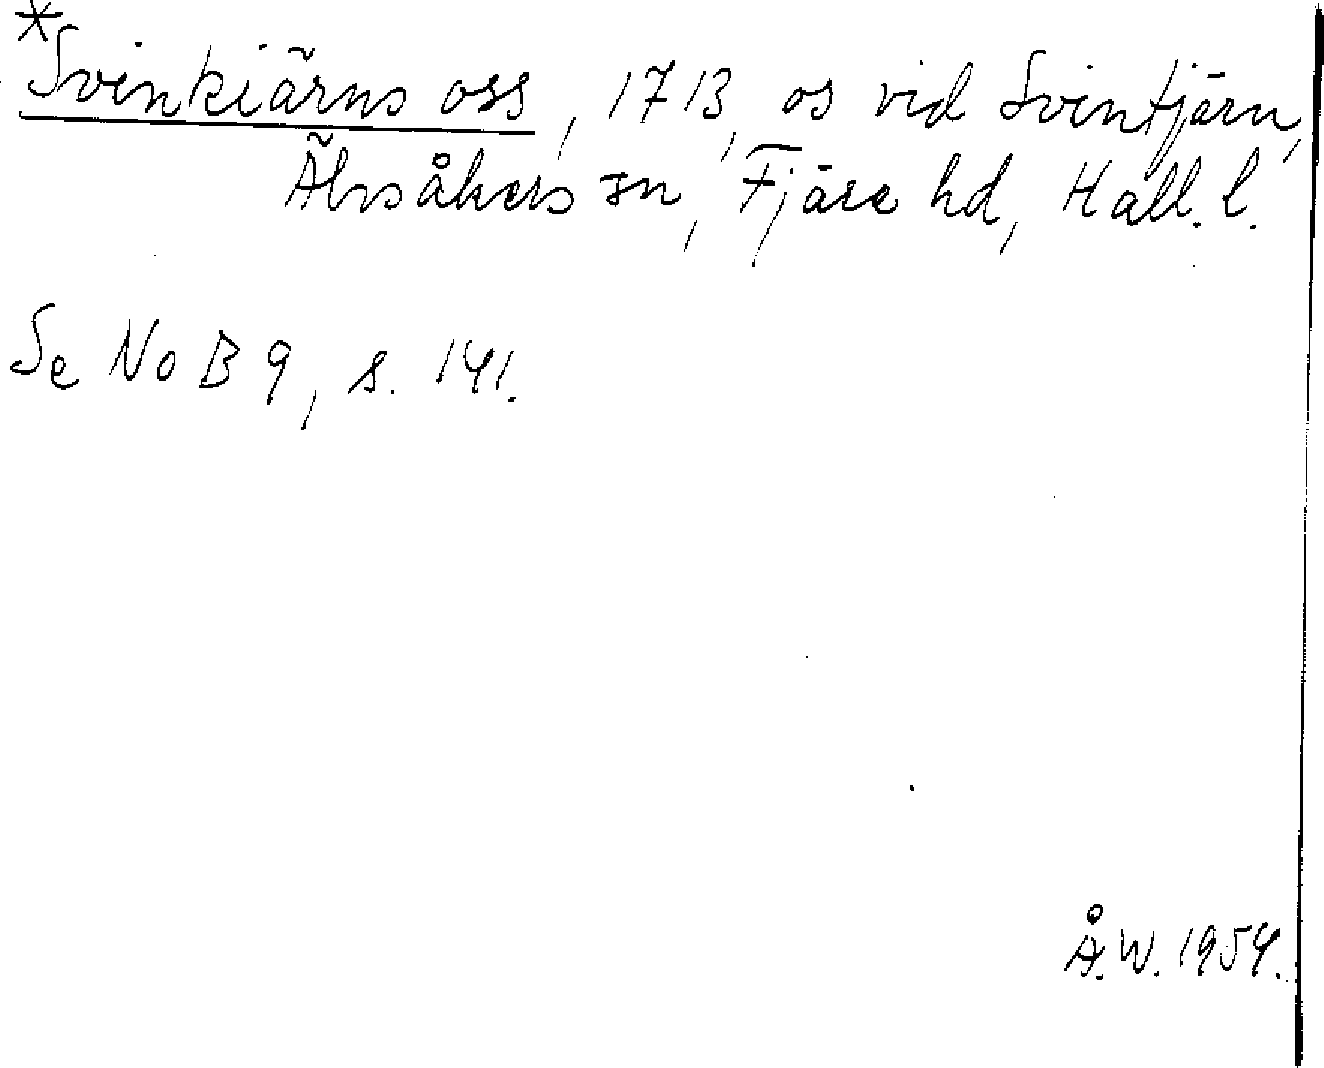 *Svinkiärns oss, 1713, os vid Svintjärn,
Älvsåkers sn, Fjäre hd, Hall. l.
Se NoB 9, s. 141.
Å.W. 1954.